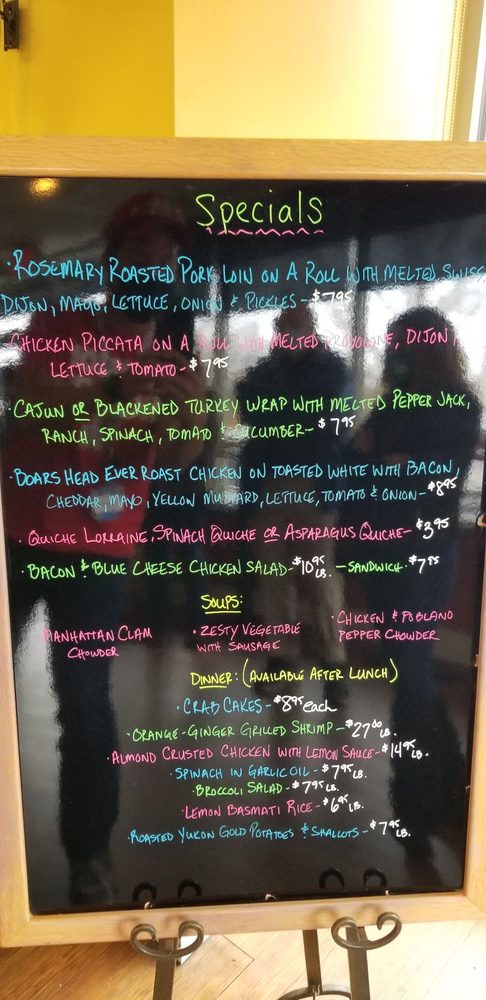 Specials
·ROSEMARY ROASTED PORK LOIN ON A ROLL WITH MELTED SWISS
DIJON, MAYO, LETTUCE, ONION & PICKLES - $7.95
·CHICKEN PICCATA ON A ROLL WITH MELTED PROVOLONE, DIJON,
LETTUCE & TOMATO - $7.95
·CAJUN OR BLACKENED TURKEY WRAP WITH MELTED PEPPER JACK,
RANCH, SPINACH, TOMATO & CUCUMBER - $7.95
·BOARS HEAD EVER ROAST CHICKEN ON TOASTED WHITE WITH BACON,
CHEDDAR, MAYO, YELLOW MUSTARD, LETTUCE, TOMATO & ONION - $8.95
·QUICHE LORRAINE, SPINACH QUICHE OR ASPARAGUS QUICHE - $3.95
·BACON & BLUE CHEESE CHICKEN SALAD - $10.95 LB. - SANDWICH · $7.95
SOUPS:
MANHATTAN CLAM
CHOWDER
·ZESTY VEGETABLE
WITH SAUSAGE
·CHICKEN & POBLANO
PEPPER CHOWDER
DINNER: (AVAILABLE AFTER LUNCH)
·CRAB CAKES - $8.95 each
·ORANGE-GINGER GRILLED SHRIMP - $27.00 LB.
·ALMOND CRUSTED CHICKEN WITH LEMON SAUCE - $14.95 LB.
·SPINACH IN GARLIC OIL - $7.95 LB.
·BROCCOLI SALAD - $7.95 LB.
·LEMON BASMATI RICE - $6.95 LB.
·ROASTED YUKON GOLD POTATOES & SHALLOTS - $7.95 LB.